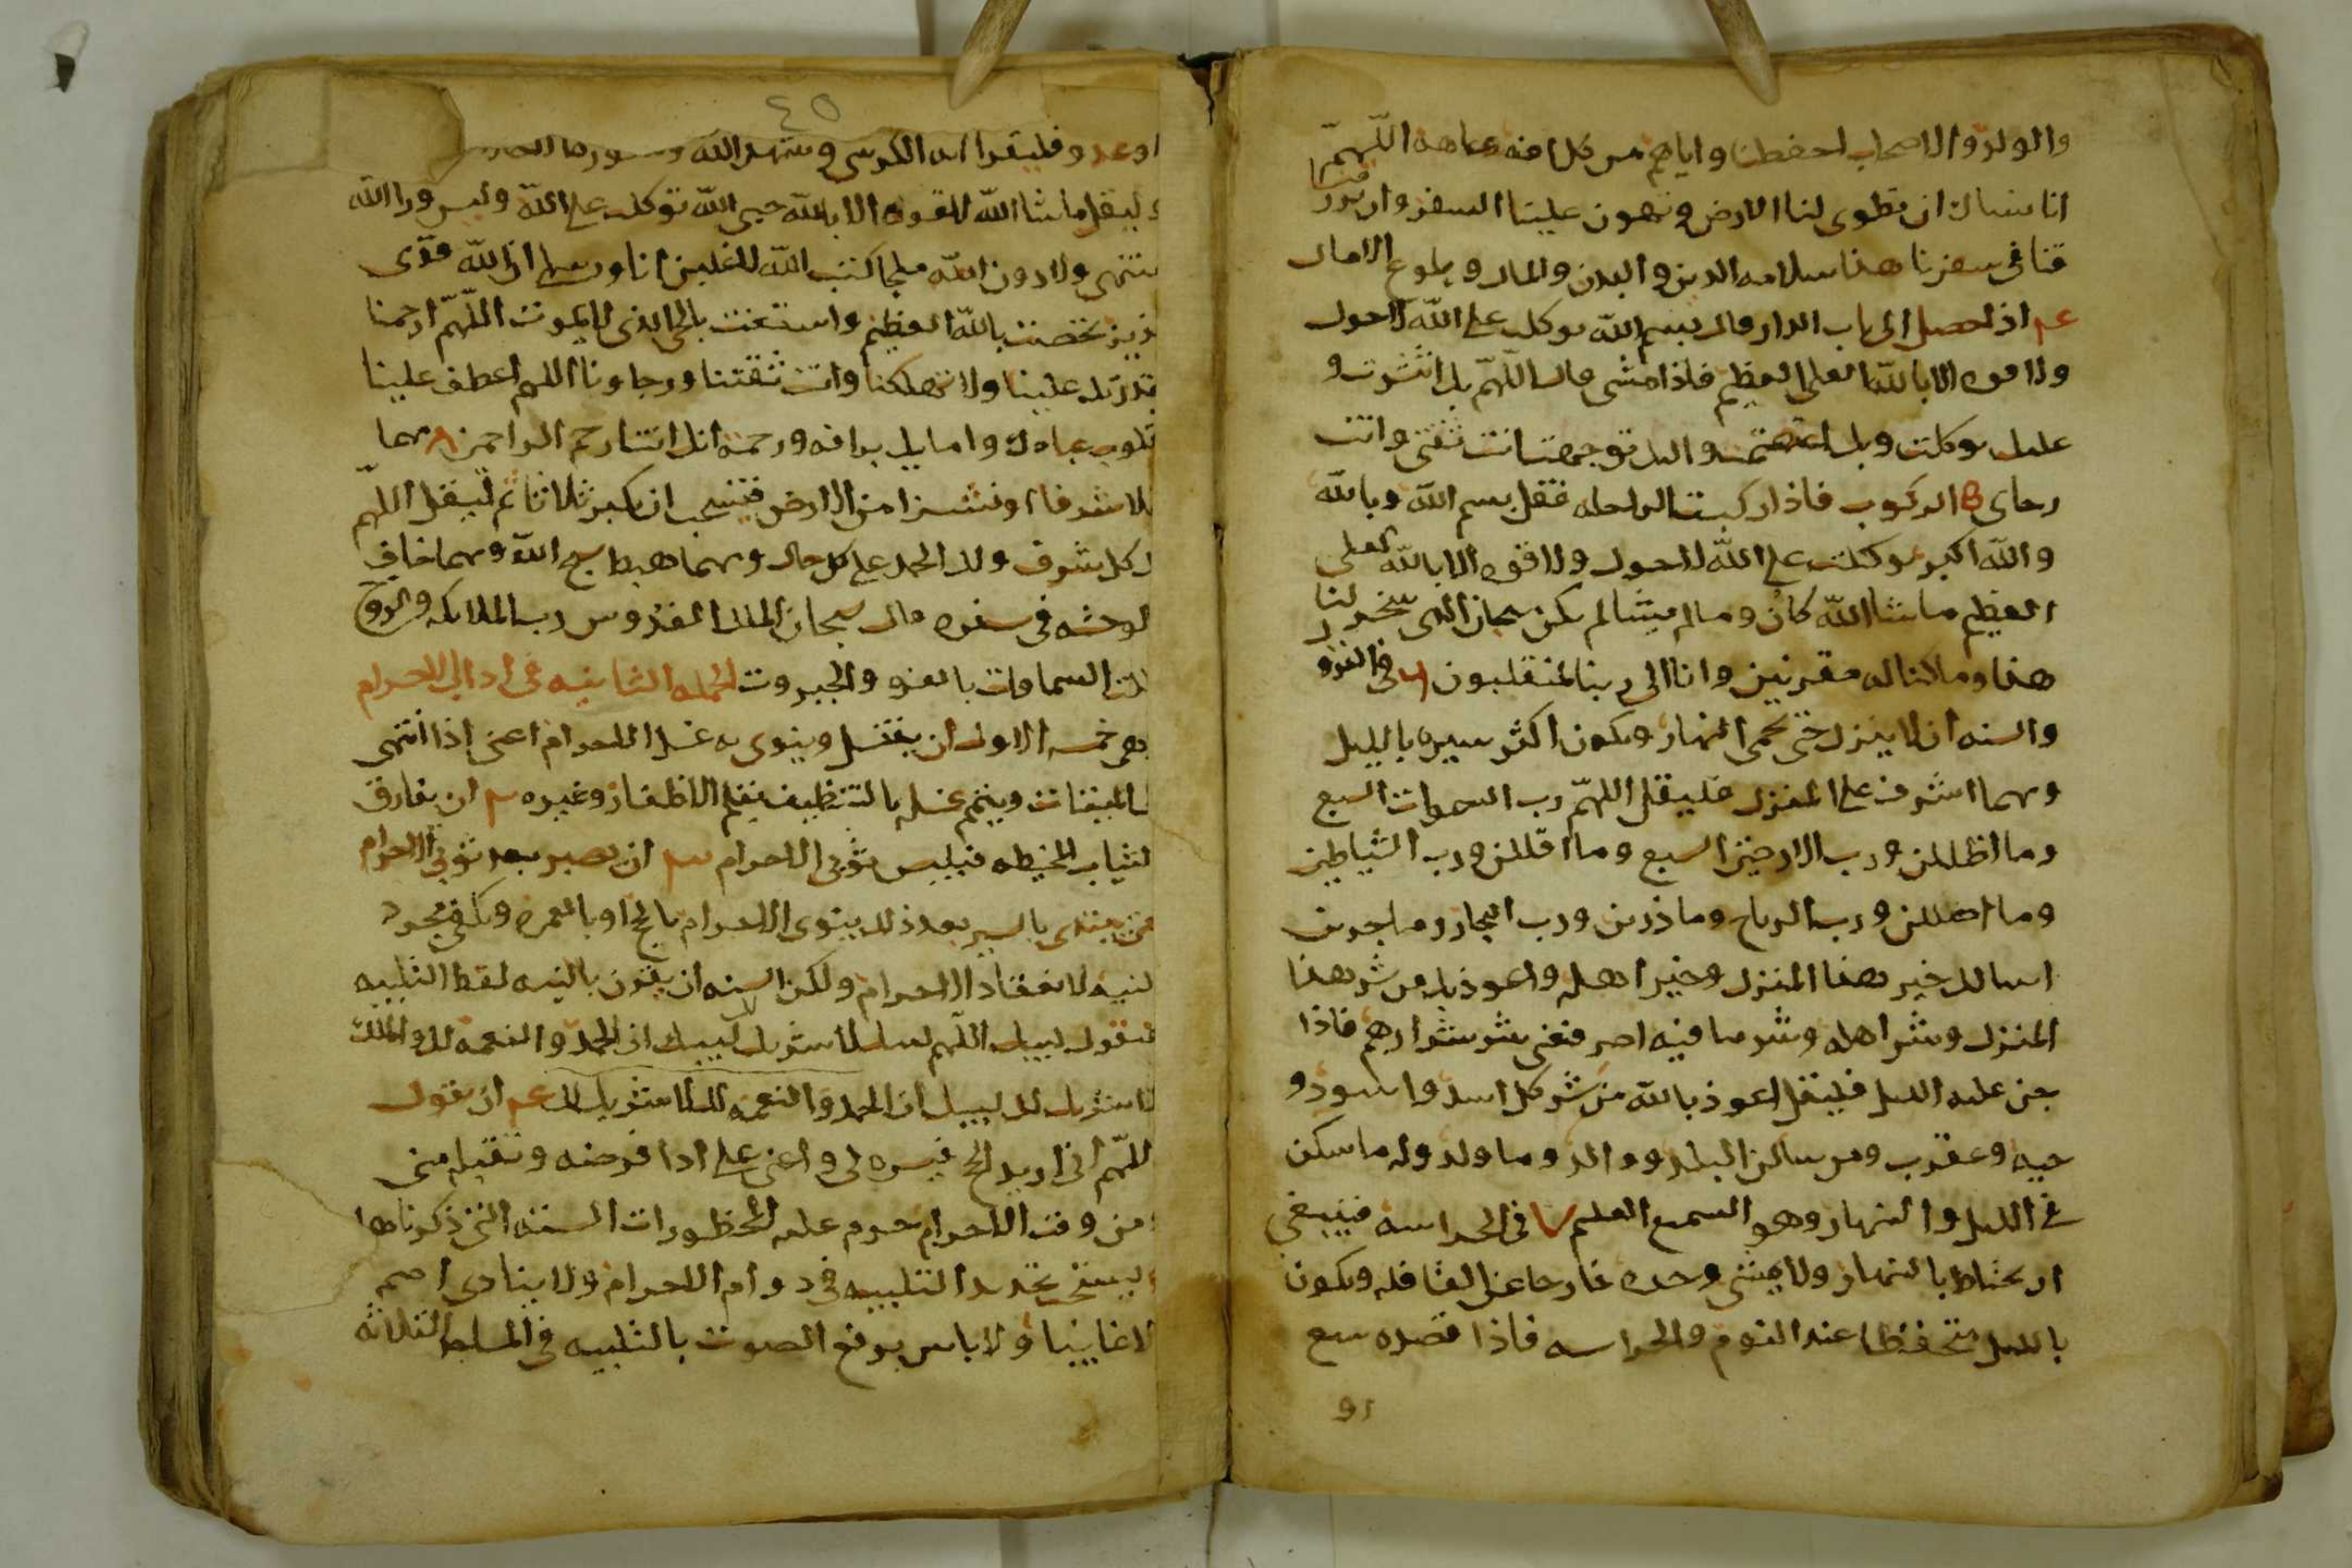 والولد والاصحاب احفظنا واياهم من كل افه وعاهه اللهمّ
انا نسالك ان تطوى لنا الارض وتهون علينا السفر وان ترز
قنا فى سفرنا هذا سلامه الدين والبدن والمال وبلوغ الامال
عم اذا حصل الى باب الدار قال بسم الله توكلت على الله لاحول
ولا قوه الا بالله العلى العظيم فاذا مشى قال اللهمّ بك انتشرت و
عليك توكلت وبك اعتصمت واليك توجهت انت ثقتى وانت
رجاى الركوب فاذا ركبت الراحله فقل بسم الله وبالله
والله اكبر توكلت على الله لاحول ولا قوه الا بالله العلى
العظيم ماشا الله كان ومالم يشا لم يكن سبحان الذى سخر لنا
هذا وما كنا له مقرنين وانا الى ربنا لمنقلبون فى النزول
والسنه ان لا ينزل حتى يحمى النهار ويكون اكثر سيره بالليل
ومهما اشرف على المنزل فليقل اللهمّ رب السموات السبع
وما اظللن ورب الارضين السبع وما اقللن ورب الشياطين
وما اضللن ورب الرياح وما ذرين ورب البحار وما جرين
اسالك خير هذا المنزل وخير اهله واعوذ بك من شر هذا
المنزل وشر اهله وشر ما فيه اصرف عنى شر شرارهم فاذا
جن عليه الليل فليقل اعوذ بالله من شر كل اسد واسود و
حيه وعقرب ومن ساكن البلد ووالد وما ولد وله ما سكن
فى الليل والنهار وهو السميع العليم ٧ فى الحراسه فينبغى
ان يحتاط بالنهار ولا يمشى وحده خارجا عن القافله ويكون
بالليل متحفظا عند النوم والحراسه فاذا قصده سبع
او
٤٥
او عدو فليقرا ايه الكرسى وشهد الله وسوره
وليقل ماشا الله لا قوه الا بالله حسبى الله توكلت على الله وليس ورا الله
منتهى ولا دون الله ملجا كتب الله لاغلبن انا ورسلى ان الله قوى
عزيز تحصنت بالله العظيم واستعنت بالحى الذى لا يموت اللهمّ ارحمنا
بقدرتك علينا ولا تهلكنا وانت ثقتنا ورجاونا اللهم اعطف علينا
قلوب عبادك وامايك برافه ورحمه انك انت ارحم الراحمين ٨ مهما
علا شرفا او نشزا من الارض فيستحب ان يكبر ثلاثا ثم ليقل اللهمّ
كل شرف ولك الحمد على كل حال ومهما هبط سبح الله ومهما خاف
الوحشه فى سفره قال سبحان الملك القدوس رب الملايكه والروح
السماوات بالعزه والجبروت الجمله الثانيه فى اداب الاحرام
وهى خمسه الاول ان يغتسل وينوى به غسل الاحرام اعنى اذا انتهى
الى الميقات ويتمم غسله بالتنظيف بقلم الاظفار وغيره ان يفارق
الثياب المخيطه فيلبس ثوبى الاحرام ان يصبر بعد ثوبى الاحرام
حتى يبتدى بالسير بعد ذلك ينوى الاحرام بالحج او بالعمره ويكفى مجرد
النيه لانعقاد الاحرام ولكن السنه ان يقرن بالنيه لفظ التلبيه
فيقول لبيك اللهم لبيك لا شريك لك لبيك ان الحمد والنعمه لك والملك
لا شريك لك لبيك ان الحمد والنعمه لك لا شريك لك عم ان يقول
اللهمّ انى اريد الحج فيسره لى واعنى على ادا فرضه وتقبله منى
ومن وقت الاحرام حرم عليه المحظورات السته التى ذكرناها
ويستحب تجديد التلبيه فى دوام الاحرام ولا ينادى اصم
ولا غايبا ولا باس برفع الصوت بالتلبيه فى المساجد الثلاثه